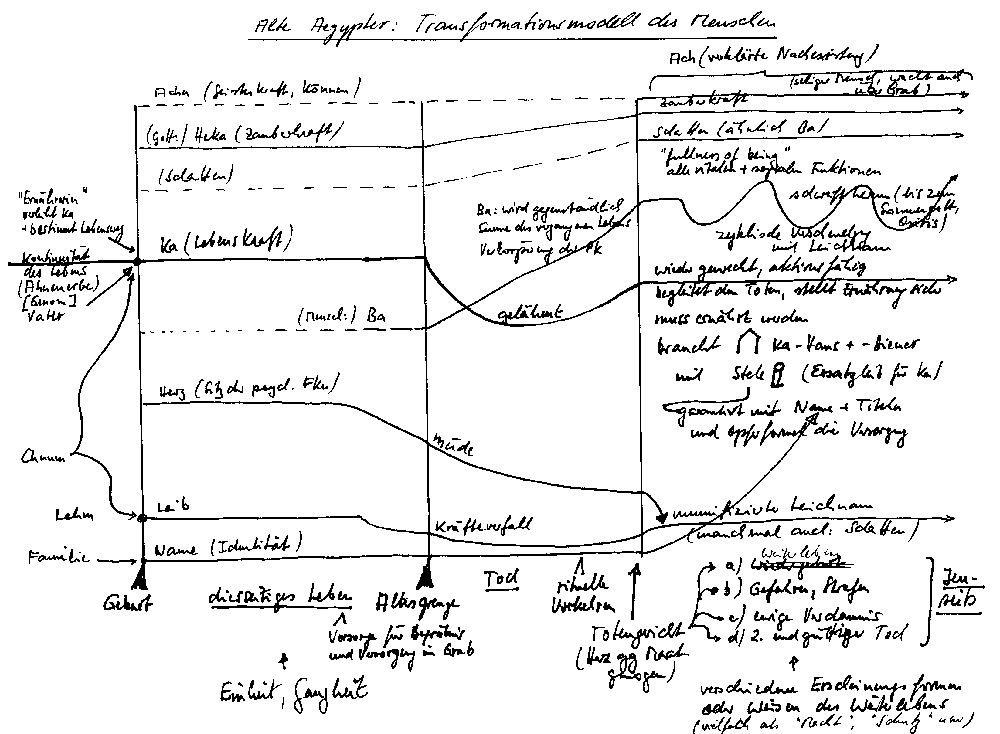 Alte Aegypter: Transformationsmodell des Menschen
Ach (verklärte Nachexistenz)
(seliger Mensch, wacht auch
über Grab)
Acha (Geisterkraft, Können)
Zauberkraft
(Gott.) Heka (Zauberkraft)
Schatten (ähnlich Ba)
(Schatten)
"fullness of being"
alle vitalen + sozialen Funktionen
schweift herum (bis zum
Sonnengott,
Osiris)
zyklische Verschmelzung
mit Leichnam
Ba: wird gegenständlich
Summe des vergangenen Lebens
Verkörperung der
"Ernährerin"
bestimmt Lebensweg
Ka (Lebenskraft)
Kontinuität
des Lebens
(Ahnenerbe)
[Genom]
Vater
gelähmt
wieder geweckt, aktionsfähig
begleitet den Toten, stellt Ernährung sicher
muss ernährt werden
braucht Ka-Haus + -Diener
mit Stele (Ersatzleib für Ka)
gerahmt mit Name + Titeln
und Opferformel die Versorgung
Ba
Herz (Sitz der psych. Fkn)
müde
Chnum
Lehm
Leib
Kräfteverfall
mumifizierter Leichnam
(manchmal auch: Schatten)
Familie
Name (Identität)
Geburt
diesseitiges Leben
Altersgrenze
Tod
rituelle
Vorkehren
Vorsorge für Begräbnis
und Versorgung im Grab
Einheit, Ganzheit
Totengericht
(Herz gg Maat
gewogen)
Weiterleben
a)
b) Gefahren, Strafen
c) ewige Verdammnis
d) 2. endgültiger Tod
Jen-
seits
verschiedene Erscheinungsformen
oder Weisen des Weiterlebens
(vielfach als "Macht", "Schutz" usw)